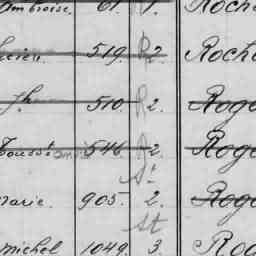 Ambroise. 61. 1. Roch
Lucien. 519. R 2 Roch
Jh 510. R 2. Roge
Touss 546 R 2. Roge
Marie. 905. 2. Roge
St
Michel 1049. 3. Rog